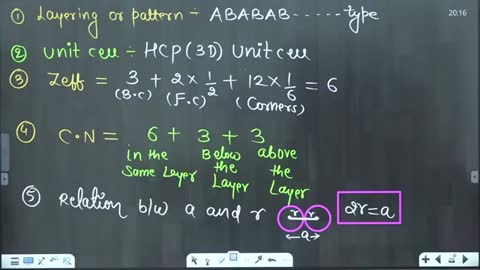 20:16
① Layering or pattern ÷ ABABAB ------ type
② Unit cell ÷ HCP (3D) Unit cell
③ Zeff = 3 + 2 × 1/2 + 12 × 1/6 = 6
(B.C) (F.C) (Corners)
④ C.N = 6 + 3 + 3
in the Same Layer Below the Layer above the Layer
⑤ Relation b/w a and r r r 2r=a
←a→